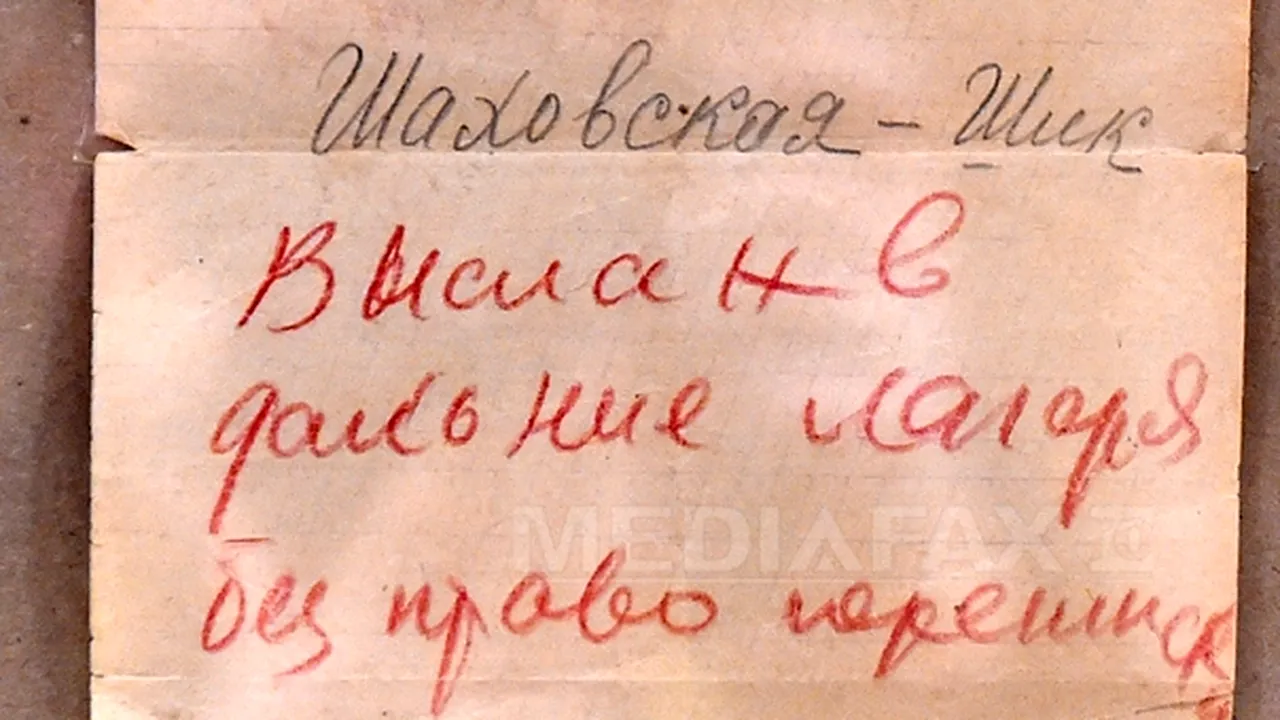 Шаховская – Шик
Выслан в
дальние лагеря
без право переписк
MEDIAFAX